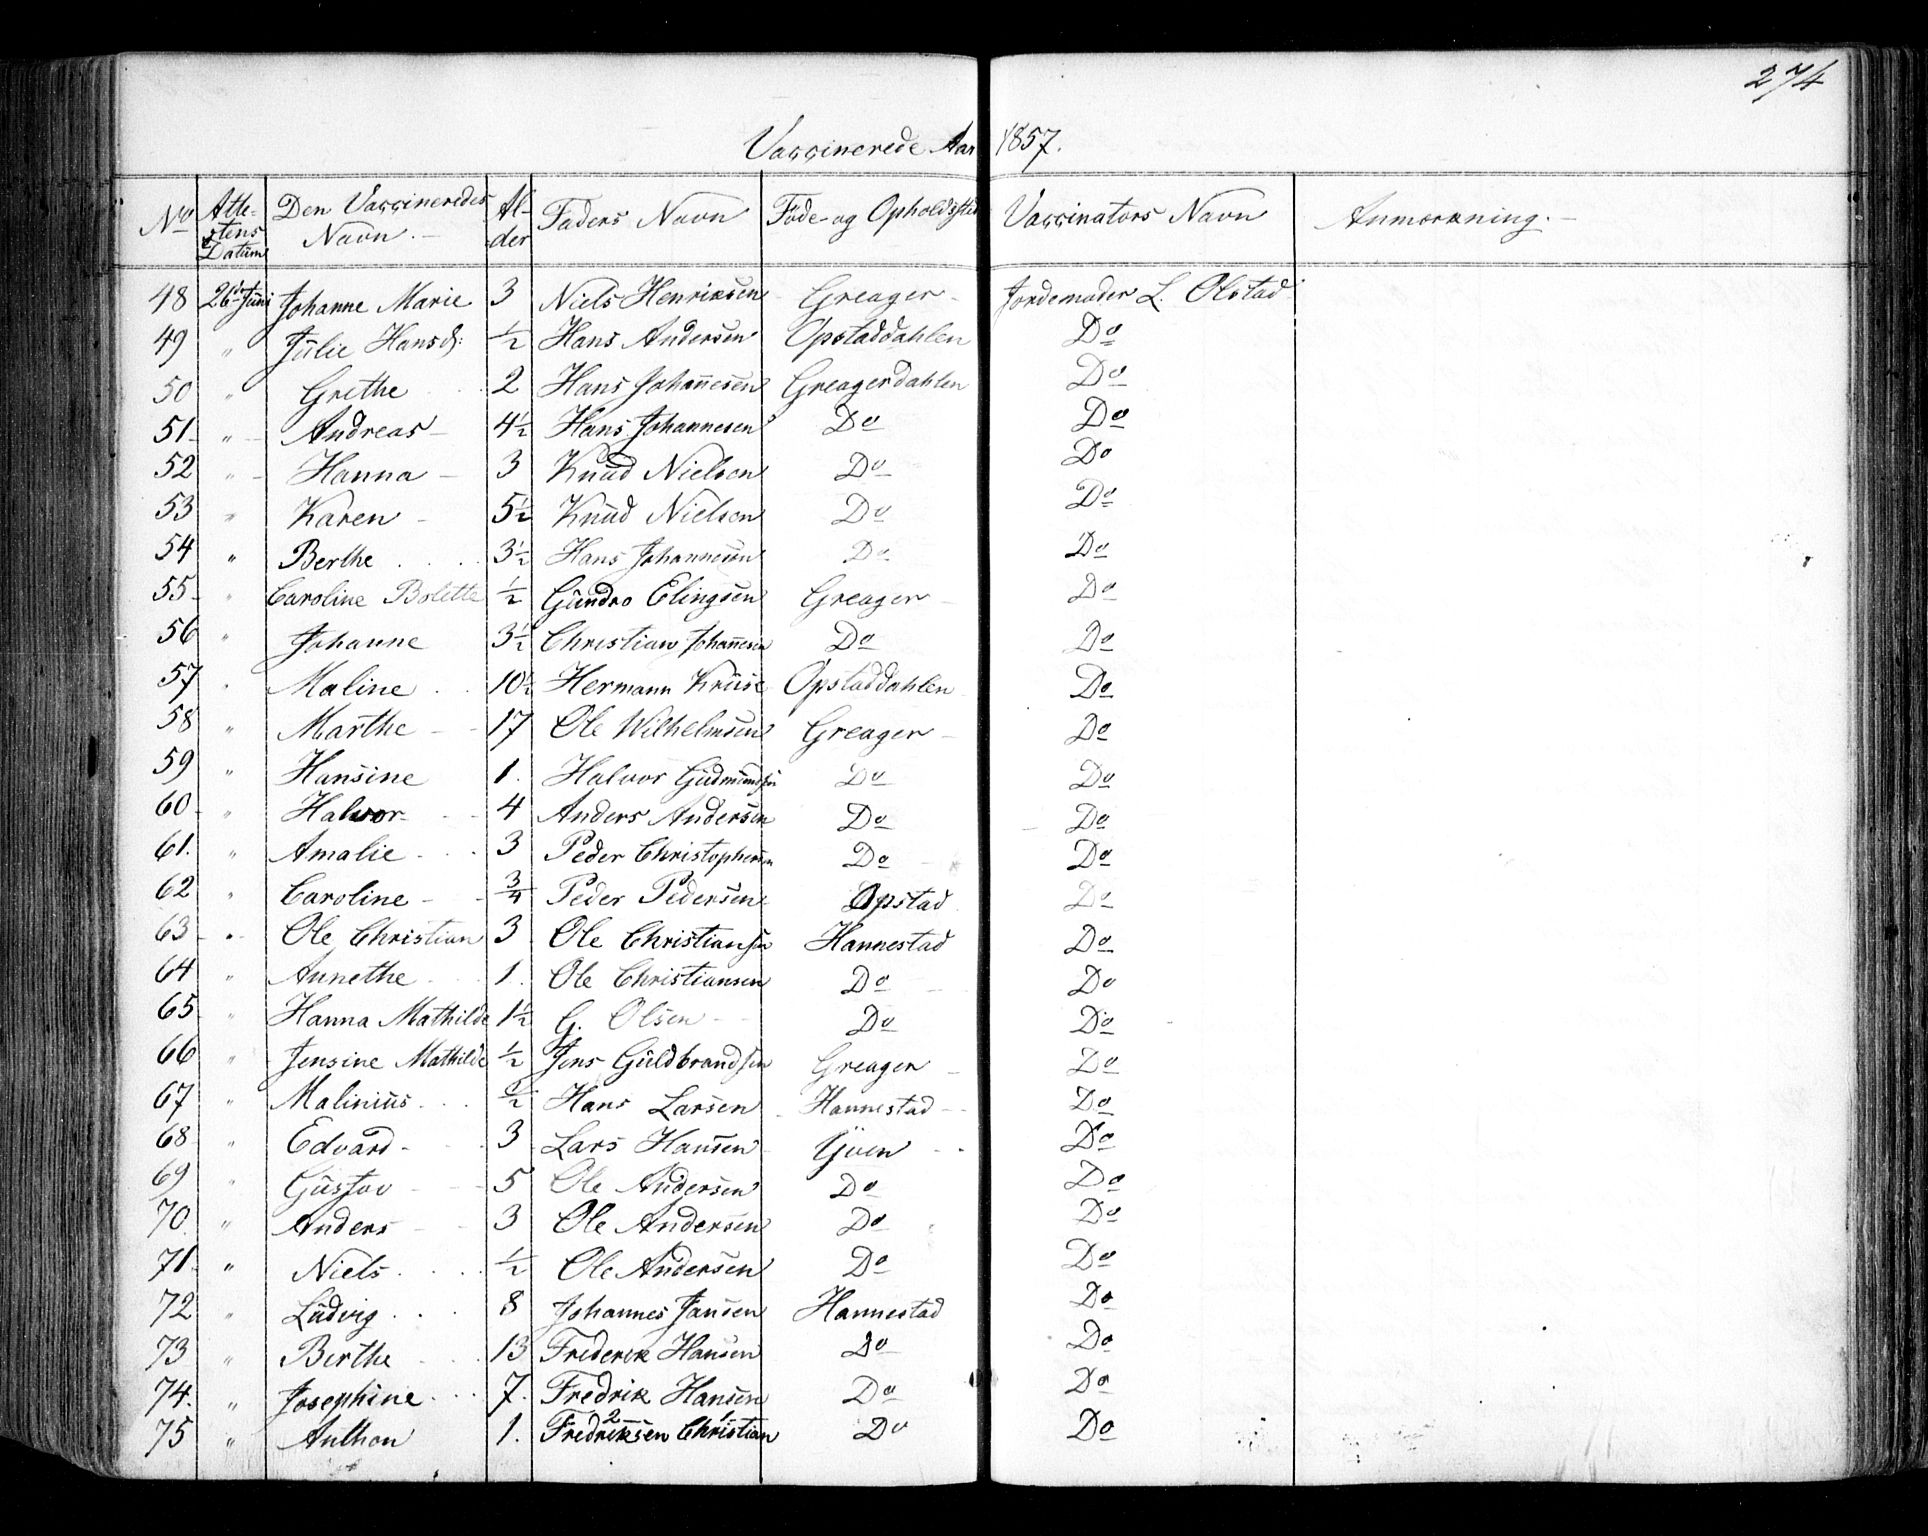 274
Vaccinerede Aar 1857.
No Atte- Den Vaccineredes Al- Faders Navn Føde- og Opholdssted Vaccinators Navn Anmærkning.
stens Navn. der
Datum
48 26de Juni Johanne Marie 3 Niels Henriksen Greager Jordemoder L. Olstad
49 " Julie Hansd: 1/2 Hans Andersen Opstaddahlen Do
50 " Grethe 2 Hans Johannesen Greagerdahlen Do
51 " Andreas 4 1/2 Hans Johannesen Do Do
52 " Hanna 3 Knud Nielsen Do Do
53 " Karen 5 1/2 Knud Nielsen Do Do
54 " Berthe 3 1/2 Hans Johannesen Do Do
55 " Caroline Bolette 1/2 Gundro Elingsen Greager Do
56 " Johanne 3 1/2 Christian Johannesen Do Do
57 " Maline 10 1/2 Hermann Kruse Opstaddahlen Do
58 " Marthe 17 Ole Wilhelmsen Greager Do
59 " Hansine 1. Halvor Gudmundsen Do Do
60 " Halvor 4 Anders Andersen Do Do
61. " Amalie 3 Peder Christophersen Do Do
62 " Caroline 3/4 Peder Pedersen Opstad Do
63 " Ole Christian 3 Ole Christiansen Hannestad Do
64 " Annethe 1. Ole Christiansen Do Do
65 " Hanna Mathilde 1 1/2 G. Olsen Do Do
66 " Jensine Mathilde 1/2 Jens Guldbrandsen Greager Do
67 " Malinius 1/2 Hans Larsen Hannestad Do
68 " Edvard 3 Lars Hansen Do
69 " Gustav 5 Ole Andersen Do Do
70 " Anders 3 Ole Andersen Do Do
71 " Niels 1/2 Ole Andersen Do Do
72 " Ludvig 8 Johannes Jansen Hannestad Do
73 " Berthe 13 Frederik Hansen Do Do
74. " Josephine 7. Fredrik Hansen Do Do
75 " Anthon 1. Fredriksen 2 Christian 1 Do Do